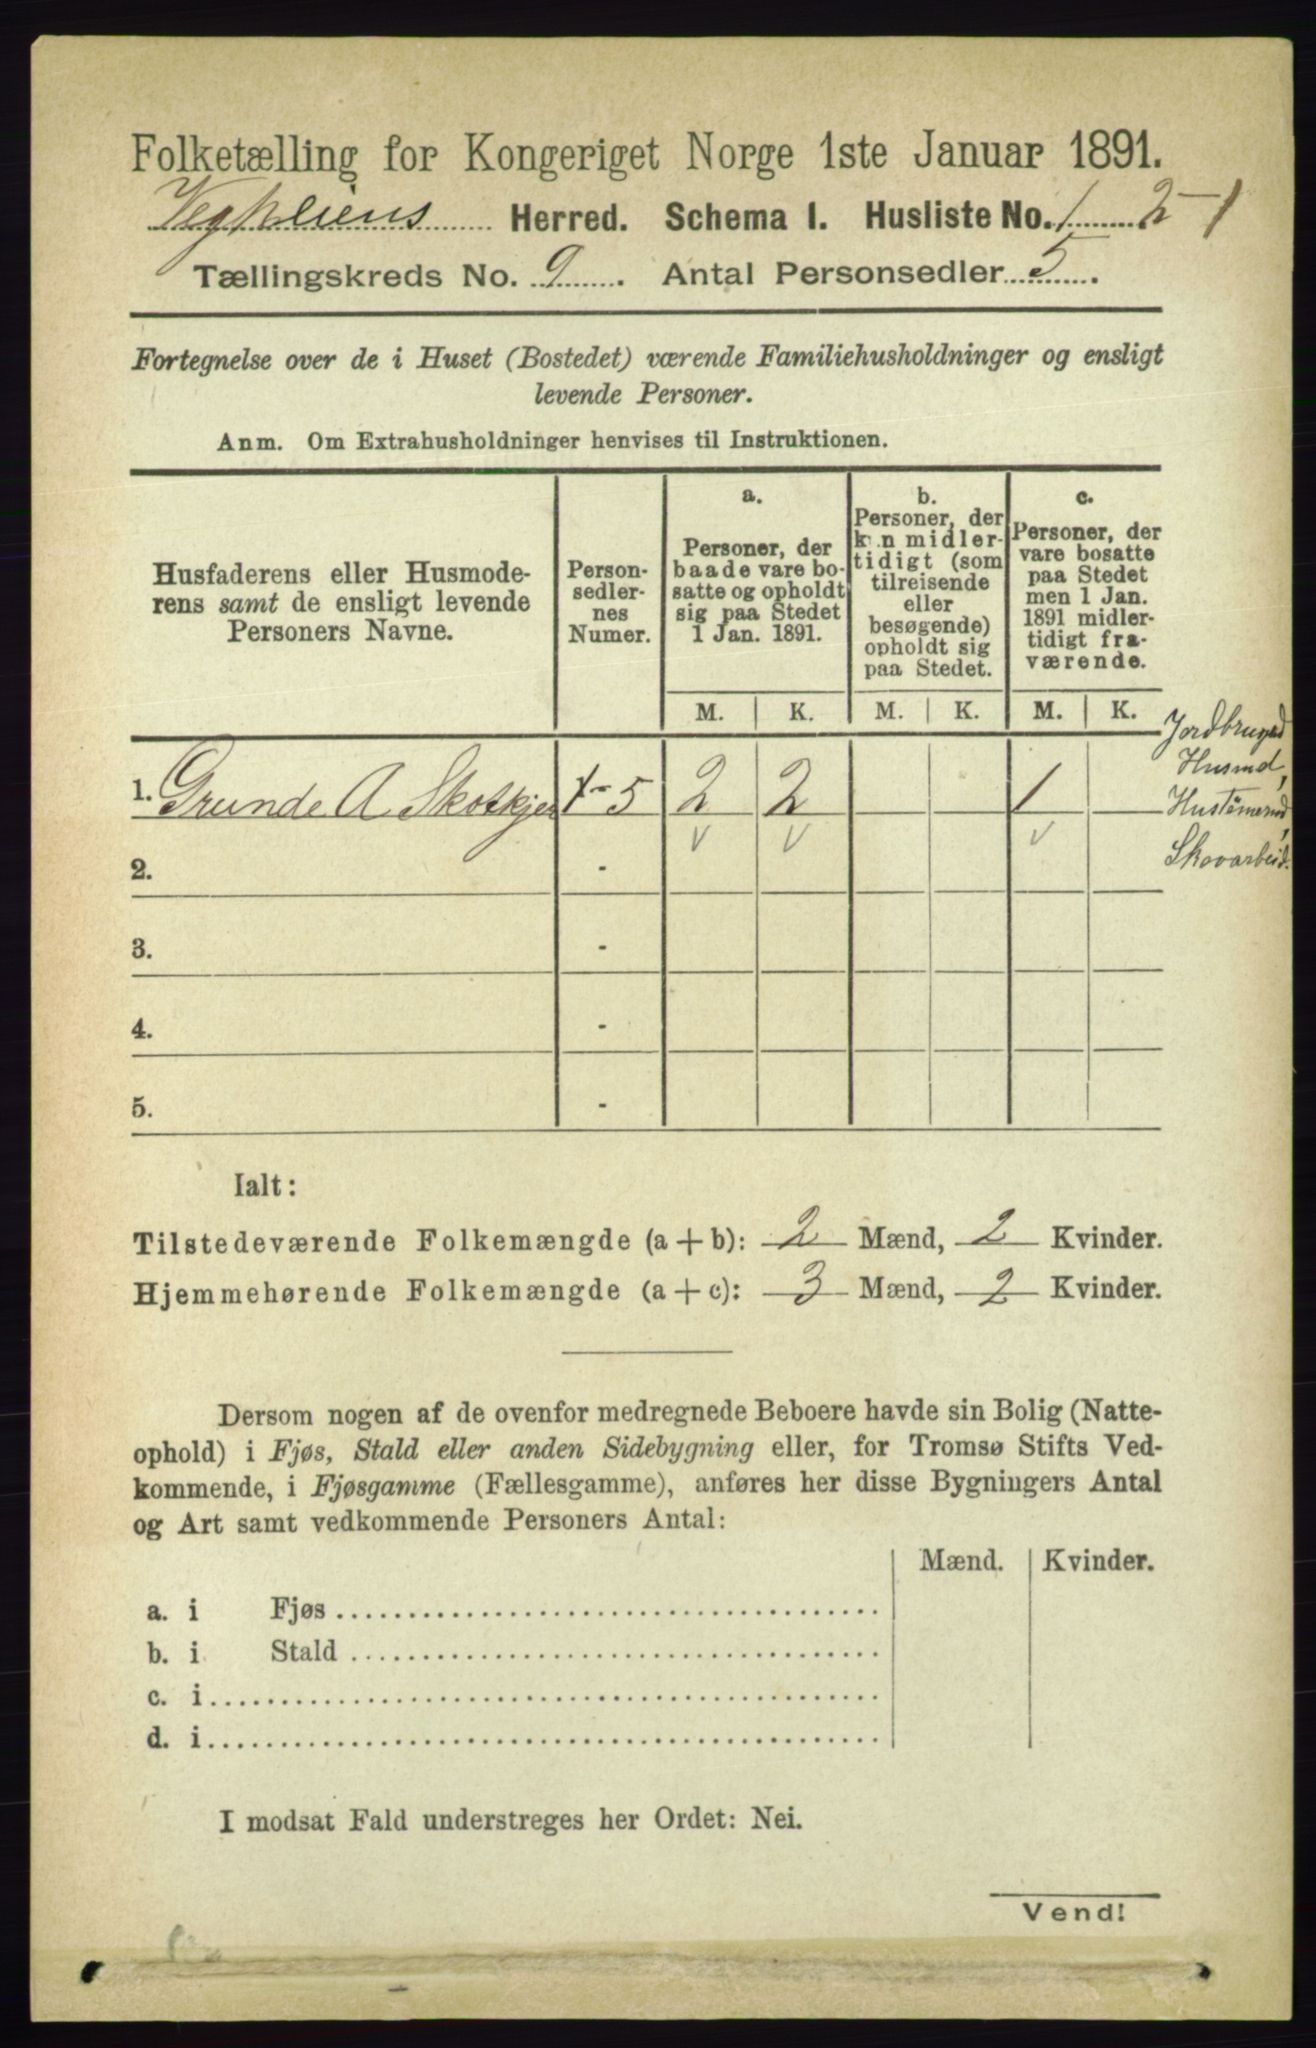 Folketælling for Kongeriget Norge 1ste Januar 1891.
Vegliens Herred. Schema I. Husliste No. 1 2-1
Tællingskreds No. 9. Antal Personsedler 5.
Fortegnelse over de i Huset (Bostedet) værende Familiehusholdninger og ensligt
levende Personer.
Anm. Om Extrahusholdninger henvises til Instruktionen.
Husfaderens eller Husmode-
rens samt de ensligt levende
Personers Navne.
Person-
sedler-
nes
Numer.
a.
Personer, der
baade vare bo-
satte og opholdt
sig paa Stedet
1 Jan. 1891.
b.
Personer, der
kun midler-
tidigt (som
tilreisende
eller
besøgende)
opholdt sig
paa Stedet.
c.
Personer, der
vare bosatte
paa Stedet
men 1 Jan.
1891 midler-
tidigt fra-
værende.
M. K. M. K. M. K.
Jordbrugsd
Husmd,
Hustømermd,
Skovarbeid.
1. Grunde A Skotkjer 1-5 2 2 1
2. -
3. -
4. -
5. -
Ialt:
Tilstedeværende Folkemængde (a+b): 2 Mænd, 2 Kvinder.
Hjemmehørende Folkemængde (a+c): 3 Mænd, 2 Kvinder.
Dersom nogen af de ovenfor medregnede Beboere havde sin Bolig (Natte-
ophold) i Fjøs, Stald eller anden Sidebygning eller, for Tromsø Stifts Ved-
kommende, i Fjøsgamme (Fællesgamme), anføres her disse Bygningers Antal
og Art samt vedkommende Personers Antal:
Mænd. Kvinder.
a. i Fjøs
b. i Stald
c. i
d. i
I modsat Fald understreges her Ordet: Nei.
Vend!